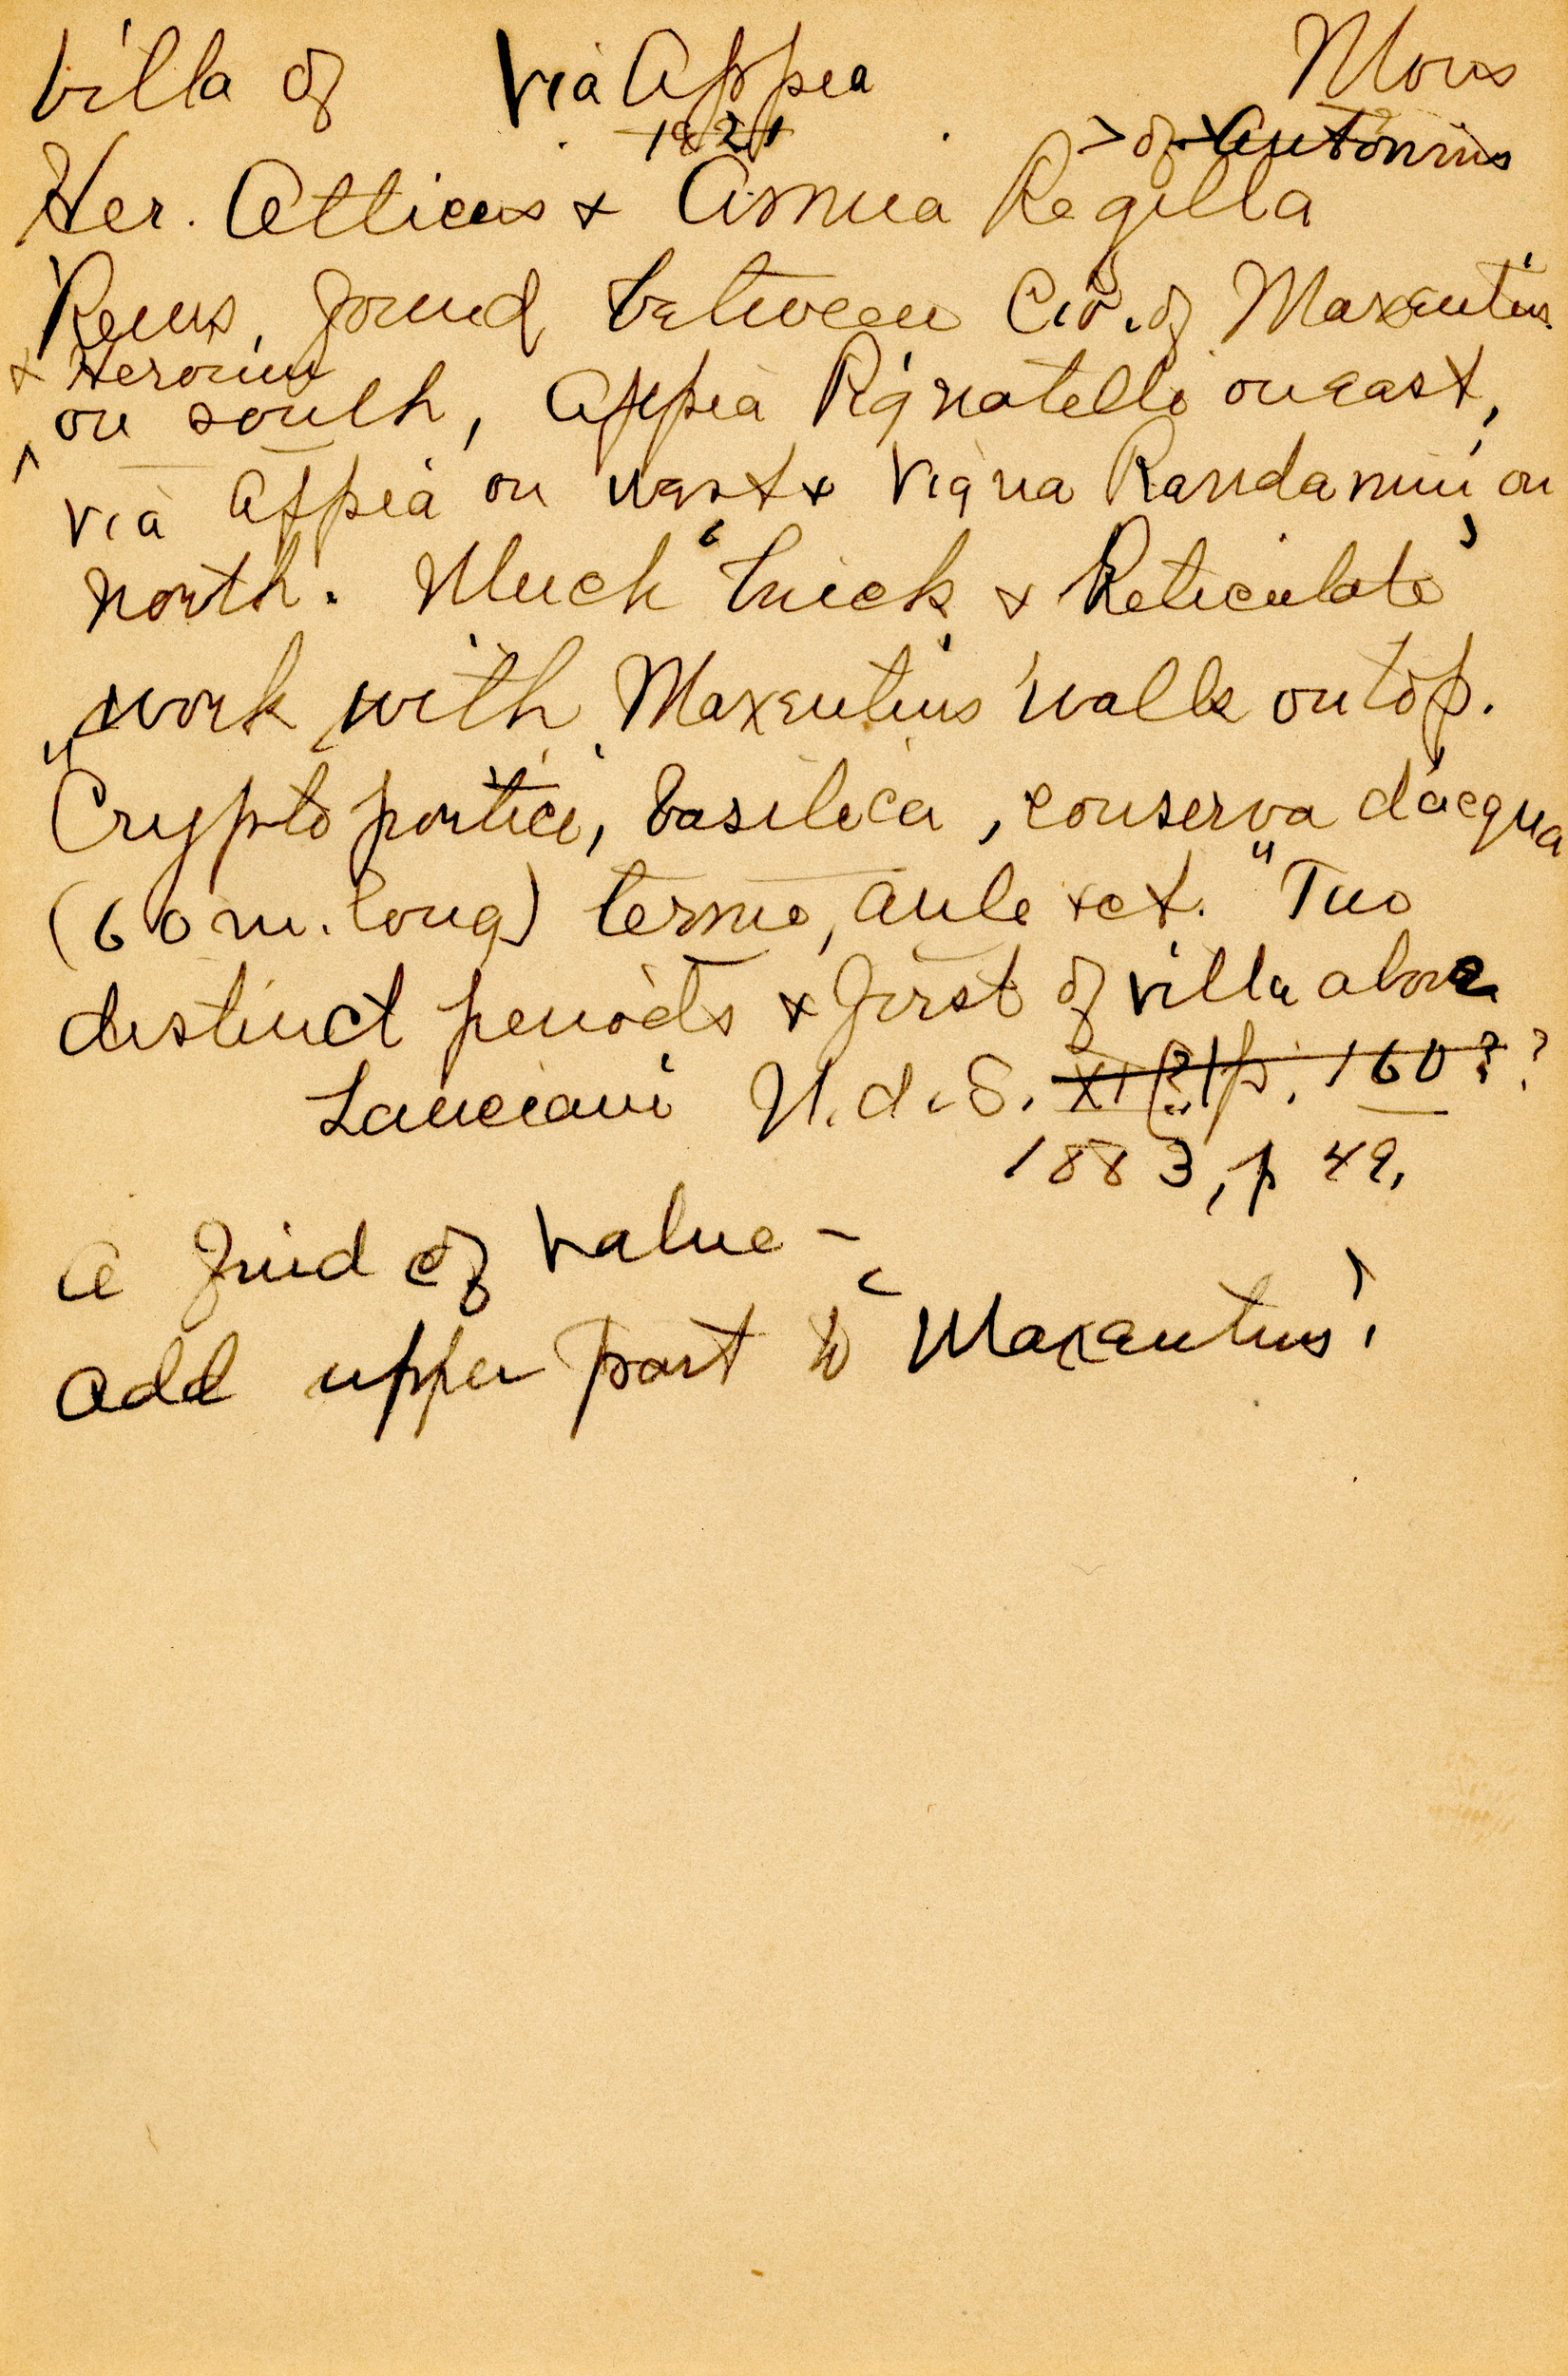 Villa of Via Appea Mons
1821 > of x Antoninus
Her. Atticus & Annia Regilla
Rems. found between Cir. of Maxentius
& Heroum
on south, Appia Pignatelli on east,
^ Via Appia on west & Vigna Randanini on
north. Much "brick & Reticulate"
work with Maxentius' walls on top.
"Crypto portici, basilica, conserva d'acqua
(60 m. long) terme, aule &ct." Two
distinct periods & first of villa above
Lanciani N. d. S. XI (?) p. 160 ? ?
1883, p 49.
A find of value –
Add upper part to "Maxentius".